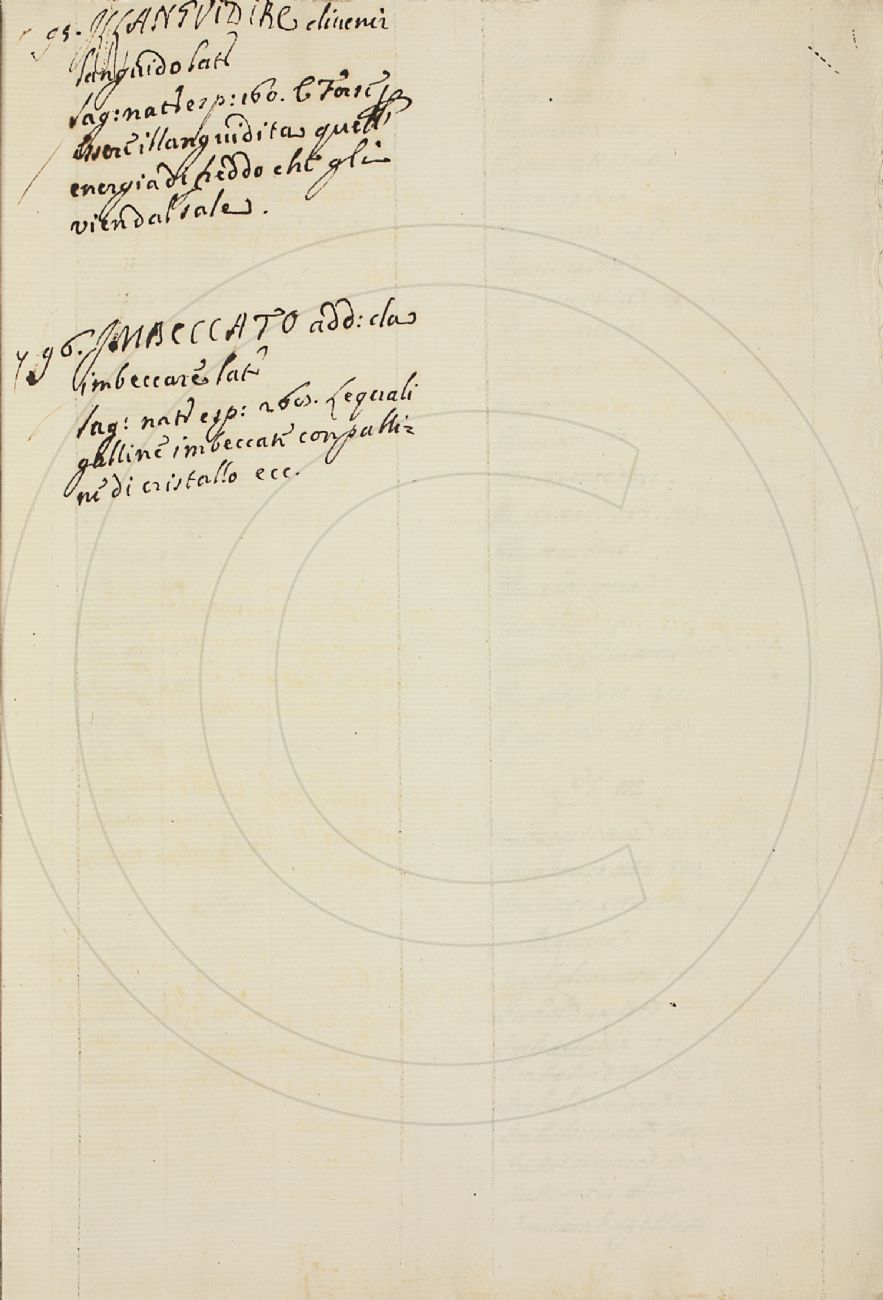 95. ILLANGUIDIRE divenir
languido lat:
sag: nat: esp: 160. E forse
essere illanguidita quell'
energia di freddo che gli
vien dal sale.
96. IMBECCATO add: da
imbeccare lat:
sag: nat: esp: 260. Le quali
galline imbeccate con palli=
ne di cristallo ecc.